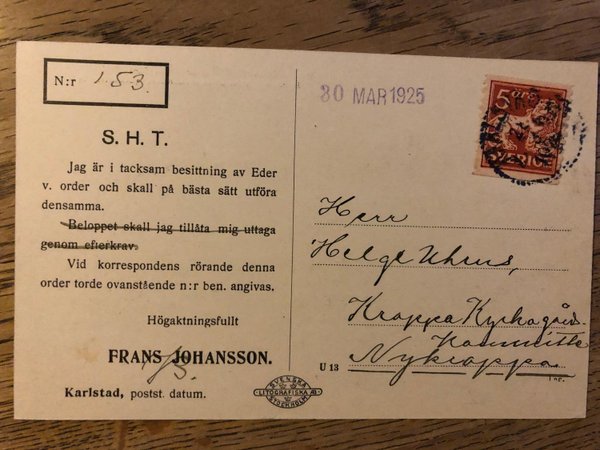 N:r 153.
S. H. T.
Jag är i tacksam besittning av Eder
v. order och skall på bästa sätt utföra
densamma.
Beloppet skall jag tillåta mig uttaga
genom efterkrav.
Vid korrespondens rörande denna
order torde ovanstående n:r ben. angivas.
Högaktningsfullt
FRANS JOHANSSON.
Karlstad, postst. datum.
SVENSKA
LITOGRAFISKA AB
STOCKHOLM
U 13
30 MAR 1925
5 ÖRE
SVERIGE
Herr
Helge Uhrus,
Kroppa Kyrkogårds-
Kommitté
Nykroppa